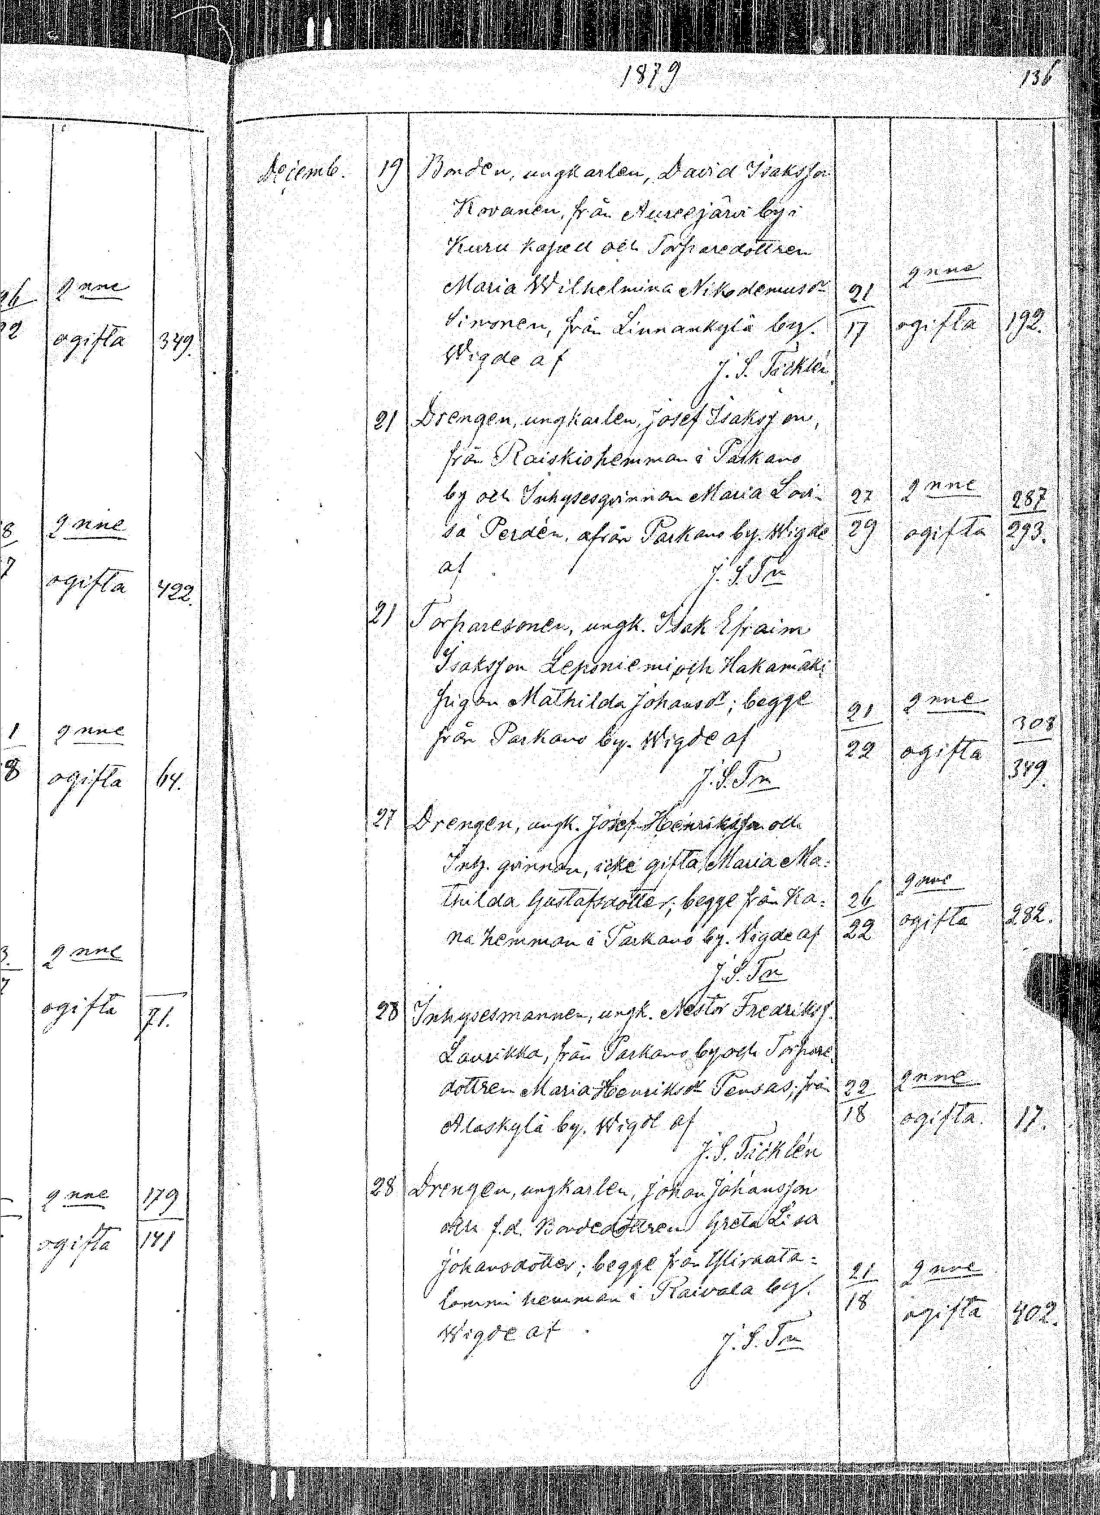 1879
136
96 2 nne
22 ogifta 349.
8 2 nne
7 ogifta 422.
1 2 nne
8 ogifta 64.
3. 2 nne
7 ogifta 71.
2 nne 179
ogifta 141
Decemb. 19 Bonden, ungkarlen, David Isaksson
Kovanen, från Aureejärvi by i
Kuru kapell och Torparedottren
Maria Wilhelmina Nikodemusdr 21 2 nne
Simonen, från Linnankylä by. 17 ogifta 192.
Wigde af J. S. Täcklén
21 Drengen, ungkarlen, Josef Isaksson,
från Raiskio hemman i Parkano
by och Inhysesqvinnan Maria Lovi- 27 2 nne 287
sa Perdén, från Parkano by. Wigde 29 ogifta 293.
af J. S. Tn
21 Torparesonen, ungk. Isak Efraim
Isaksson Leponiemi och Hakamäki
pigan Mathilda Johansdr; begge 21 2 nne 308
från Parkano by. Wigde af 22 ogifta 349.
J. S. Tn
27 Drengen, ungk. Josef Henriksson och
Inh. qvinnan, icke gifta, Maria Ma=
thilda Gustafsdotter; begge från Ka= 26 2 nne
na hemman i Parkano by. Wigde af 22 ogifta 282.
J. S. Tn
28 Inhysesmannen, ungk. Nestor Fredrikss.
Laurikka, från Parkano by och Torpare
dottren Maria Henriksdr Pensas; från 22 2 nne
Alaskylä by. Wigde af 18 ogifta. 17.
J. S. Täcklén
28 Drengen, ungkarlen, Johan Johansson
och f.d. Bondedottren Greta Lisa
Johansdotter; begge från Yliraata= 21 2 nne
lammi hemman i Raivala by. 18 ogifta 402.
Wigde af J. S. Tn